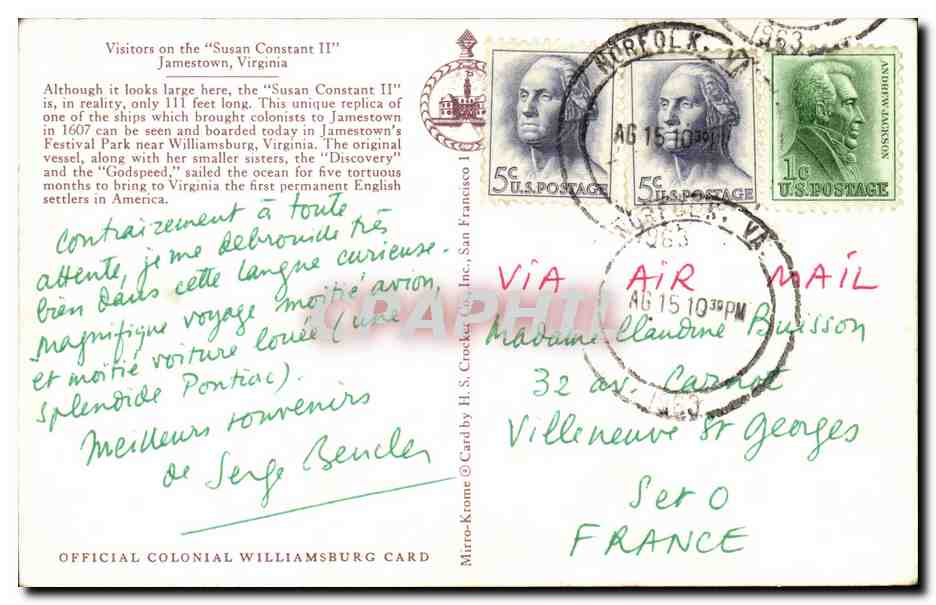 Visitors on the "Susan Constant II"
Jamestown, Virginia
Although it looks large here, the "Susan Constant II"
is, in reality, only 111 feet long. This unique replica of
one of the ships which brought colonists to Jamestown
in 1607 can be seen and boarded today in Jamestown's
Festival Park near Williamsburg, Virginia. The original
vessel, along with her smaller sisters, the "Discovery"
and the "Godspeed," sailed the ocean for five tortuous
months to bring to Virginia the first permanent English
settlers in America.
Contrairement à toute
attente, je me débrouille très
bien dans cette langue curieuse.
Magnifique voyage moitié avion,
et moitié voiture louée (une
splendide Pontiac).
Meilleurs souvenirs
de Serge
OFFICIAL COLONIAL WILLIAMSBURG CARD
Mirro-Krome ® Card by H. S. Crocker Co., Inc., San Francisco 1
5c
U.S. POSTAGE
5c
U.S. POSTAGE
ANDREW JACKSON
1c
U.S. POSTAGE
1963
NORFOLK, VA
AG 15 10 30 PM
NORFOLK, VA.
1963
AG 15 10 30 PM
1963
VIA AIR MAIL
CPAPHIL
Madame Claudine Buisson
32 av. Carnot
Villeneuve St Georges
S et O
FRANCE